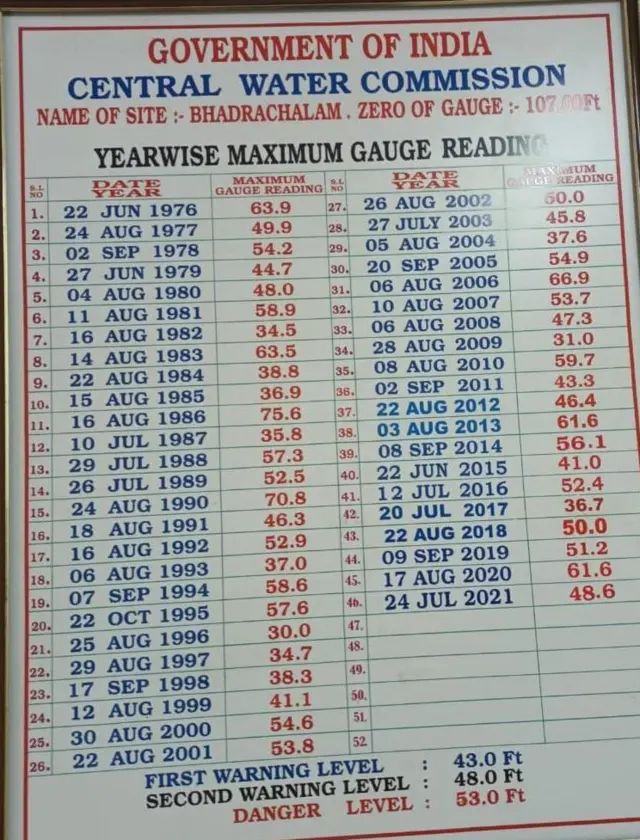 GOVERNMENT OF INDIA
CENTRAL WATER COMMISSION
NAME OF SITE :- BHADRACHALAM . ZERO OF GAUGE :- 107.00Ft
YEARWISE MAXIMUM GAUGE READING
S.L NO DATE YEAR MAXIMUM GAUGE READING
1. 22 JUN 1976 63.9
2. 24 AUG 1977 49.9
3. 02 SEP 1978 54.2
4. 27 JUN 1979 44.7
5. 04 AUG 1980 48.0
6. 11 AUG 1981 58.9
7. 16 AUG 1982 34.5
8. 14 AUG 1983 63.5
9. 22 AUG 1984 38.8
10. 15 AUG 1985 36.9
11. 16 AUG 1986 75.6
12. 10 JUL 1987 35.8
13. 29 JUL 1988 57.3
14. 26 JUL 1989 52.5
15. 24 AUG 1990 70.8
16. 18 AUG 1991 46.3
17. 16 AUG 1992 52.9
18. 06 AUG 1993 37.0
19. 07 SEP 1994 58.6
20. 22 OCT 1995 57.6
21. 25 AUG 1996 30.0
22. 29 AUG 1997 34.7
23. 17 SEP 1998 38.3
24. 12 AUG 1999 41.1
25. 30 AUG 2000 54.6
26. 22 AUG 2001 53.8
S.L NO DATE YEAR MAXIMUM GAUGE READING
27. 26 AUG 2002 50.0
28. 27 JULY 2003 45.8
29. 05 AUG 2004 37.6
30. 20 SEP 2005 54.9
31. 06 AUG 2006 66.9
32. 10 AUG 2007 53.7
33. 06 AUG 2008 47.3
34. 28 AUG 2009 31.0
35. 08 AUG 2010 59.7
36. 02 SEP 2011 43.3
37. 22 AUG 2012 46.4
38. 03 AUG 2013 61.6
39. 08 SEP 2014 56.1
40. 22 JUN 2015 41.0
41. 12 JUL 2016 52.4
42. 20 JUL 2017 36.7
43. 22 AUG 2018 50.0
44. 09 SEP 2019 51.2
45. 17 AUG 2020 61.6
46. 24 JUL 2021 48.6
47.
48.
49.
50.
51.
52.
FIRST WARNING LEVEL : 43.0 Ft
SECOND WARNING LEVEL : 48.0 Ft
DANGER LEVEL : 53.0 Ft